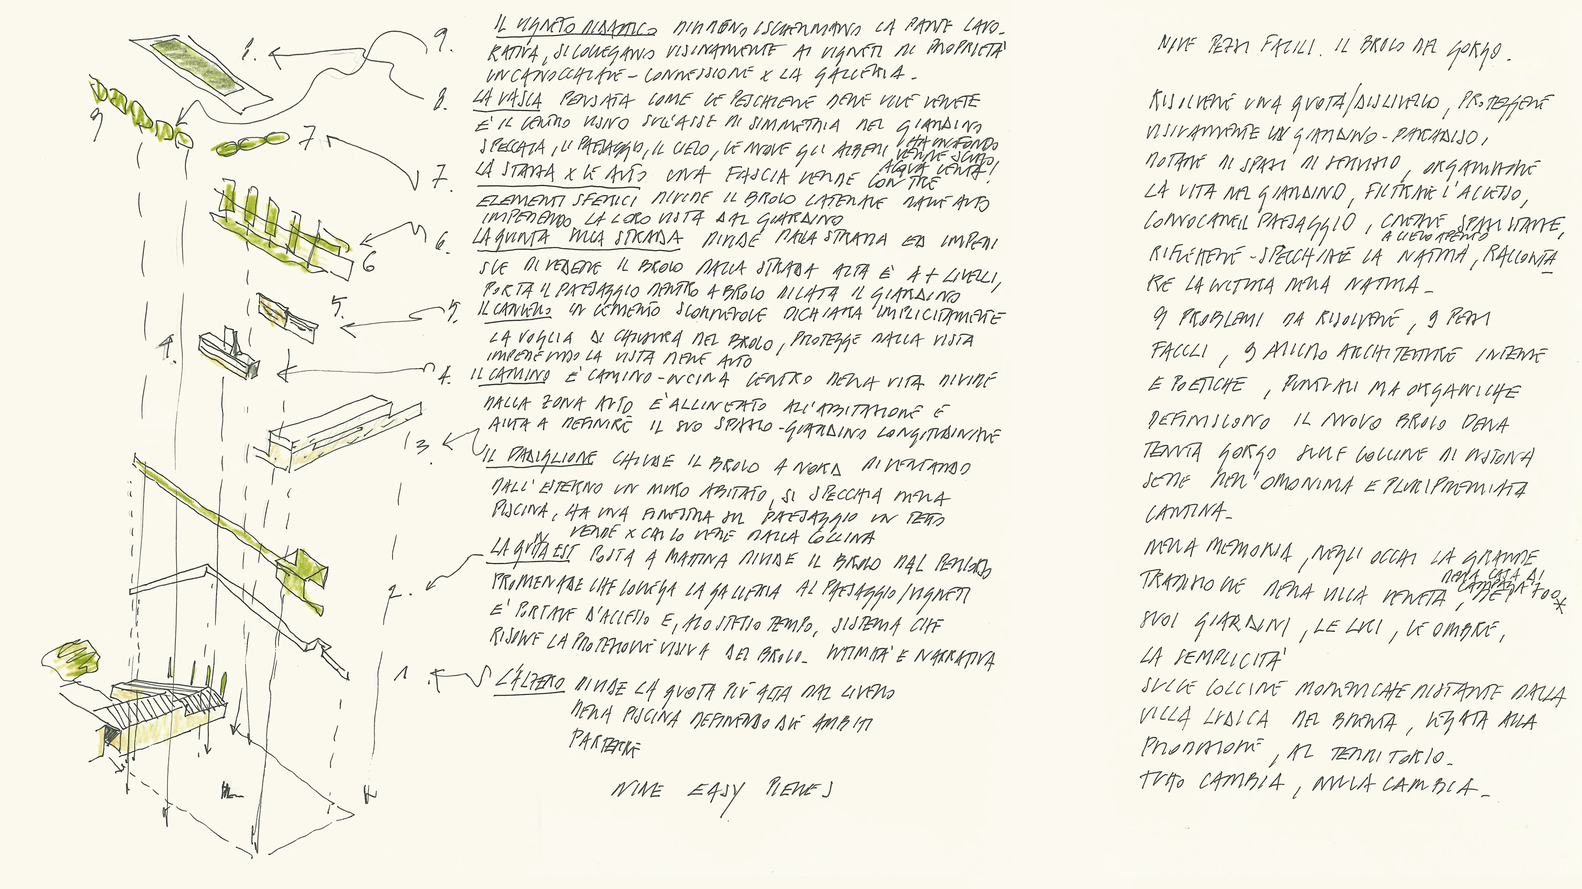 9. IL VIGNETO DIDATTICO DIVIDONO E SCHERMANO LA PARTE LAVO-
RATIVA, SI COLLEGANO VISIVAMENTE AI VIGNETI DI PROPRIETÀ
UN CANOCCHIALE-CONNESSIONE X LA GALLERIA.
8. LA VASCA PENSATA COME LE PESCHIERE DELLE VILLE VENETE
È IL CENTRO VISIVO SULL'ASSE DI SIMMETRIA DEL GIARDINO
SPECCHIA, IL PAESAGGIO, IL CIELO, LE NUVOLE GLI ALBERI, HA UN FONDO
VERDE SCURO,
ACQUA VERDA!
7. LA STANZA X LE AUTO UNA FASCIA VERDE CON TRE
ELEMENTI SFERICI DIVIDE IL BROLO LATERALE DALLE AUTO
IMPEDENDO LA LORO VISTA DAL GIARDINO
6. LA QUINTA SULLA STRADA DIVIDE DALLA STRADA ED IMPEDI
SCE DI VEDERE IL BROLO DALLA STRADA ALTA È A + LIVELLI,
PORTA IL PAESAGGIO DENTRO A BROLO DILATA IL GIARDINO
5. IL CANCELLO IN CEMENTO SCORREVOLE DICHIARA IMPLICITAMENTE
LA VOGLIA DI CHIUSURA DEL BROLO, PROTEGGE DALLA VISTA
IMPEDENDO LA VISTA DELLE AUTO
4. IL CAMINO È CAMINO-CUCINA CENTRO DELLA VITA DIVIDE
DALLA ZONA AUTO È ALLINEATO ALL'ABITAZIONE E
AIUTA A DEFINIRE IL SUO SPAZIO-GIARDINO LONGITUDINALE
3. IL PADIGLIONE CHIUDE IL BROLO A NORD DIVENTANDO
DALL'ESTERNO UN MURO ABITATO, SI SPECCHIA NELLA
PISCINA, HA UNA FINESTRA SUL PAESAGGIO UN TETTO
VERDE X CHI LO VEDE DALLA COLLINA
2. LA QUINTA EST POSTA A MATTINA DIVIDE IL BROLO DAL PERCORSO
PROMENADE CHE COLLEGA LA GALLERIA AL PAESAGGIO/VIGNETI
E' PORTALE D'ACCESSO E, ALLO STESSO TEMPO, SISTEMA CHE
RISOLVE LA PROTEZIONE VISIVA DEL BROLO. INTIMITÀ E NARRATIVA
1. L'ALZERO DIVIDE LA QUOTA PIÙ ALTA DAL LIVELLO
DELLA PISCINA DEFINENDO DUE AMBITI
PARTERRE
NINE EASY PIECES
8.
9
7
6
5.
4.
NOVE PEZZI FACILI. IL BROLO DEL GORGO.
RISOLVERE UNA QUOTA/DISLIVELLO, PROTEGGERE
VISIVAMENTE UN GIARDINO-PARADISO,
DOTARE DI SPAZI DI SERVIZIO, ORGANIZZARE
LA VITA NEL GIARDINO, FILTRARE L'ACCESSO,
CONVOCARE IL PAESAGGIO, CREARE SPAZI STANZE,
A CIELO APERTO
RIFLETTERE-SPECCHIARE LA NATURA, RACCONTA
RE LA CULTURA NELLA NATURA.
9 PROBLEMI DA RISOLVERE, 9 PEZZI
FACILI, 9 MICRO ARCHITETTURE INTENSE
E POETICHE, PUNTUALI MA ORGANICHE
DEFINISCONO IL NUOVO BROLO DELLA
TENUTA GORGO SULLE COLLINE DI CUSTOZA
SEDE DELL'OMONIMA E PLURIPREMIATA
CANTINA.
NELLA MEMORIA, NEGLI OCCHI LA GRANDE
TRADIZIONE DELLA VILLA VENETA, DELLA CASA DI
CAMPAGNA '700*, DEI
SUOI GIARDINI, LE LUCI, LE OMBRE,
LA SEMPLICITÀ
SULLE COLLINE MORENICHE DISTANTE DALLA
VILLA LUDICA DEL BRENTA, LEGATA ALLA
PRODUZIONE, AL TERRITORIO.
TUTTO CAMBIA, NULLA CAMBIA.